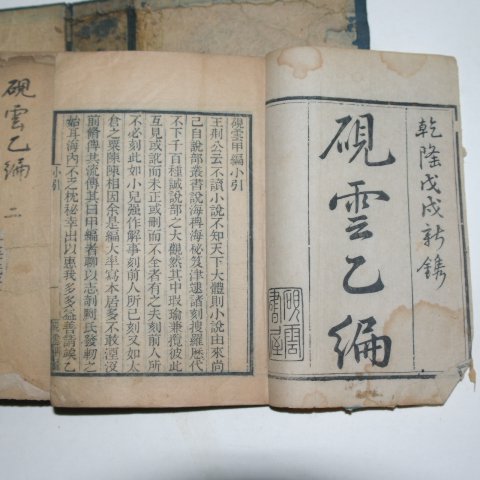 乾隆戊戌新鐫
硯雲乙編
硯雲書屋
硯雲甲編小引
王荆公云不讀小說不知天下大體則小說由來尚
己自說部叢書說海稗海秘笈津逮諸刻搜羅歷代
不下千百種誠說部之大觀然其中瑕瑜兼攬彼此
互見或訛而未正或刪而不全者有之夫刻前人所
未刻必如小兒強作解事刻前人所已刻又如太
倉之粟陳陳相因余是編大率寫本居多不敢湮沒
前脩俾其流傳其曰甲編者聊以志剞劂氏發軔之
始耳海內不乏枕秘幸出以惠我多多益善請竢乙
小引
硯雲乙編 二